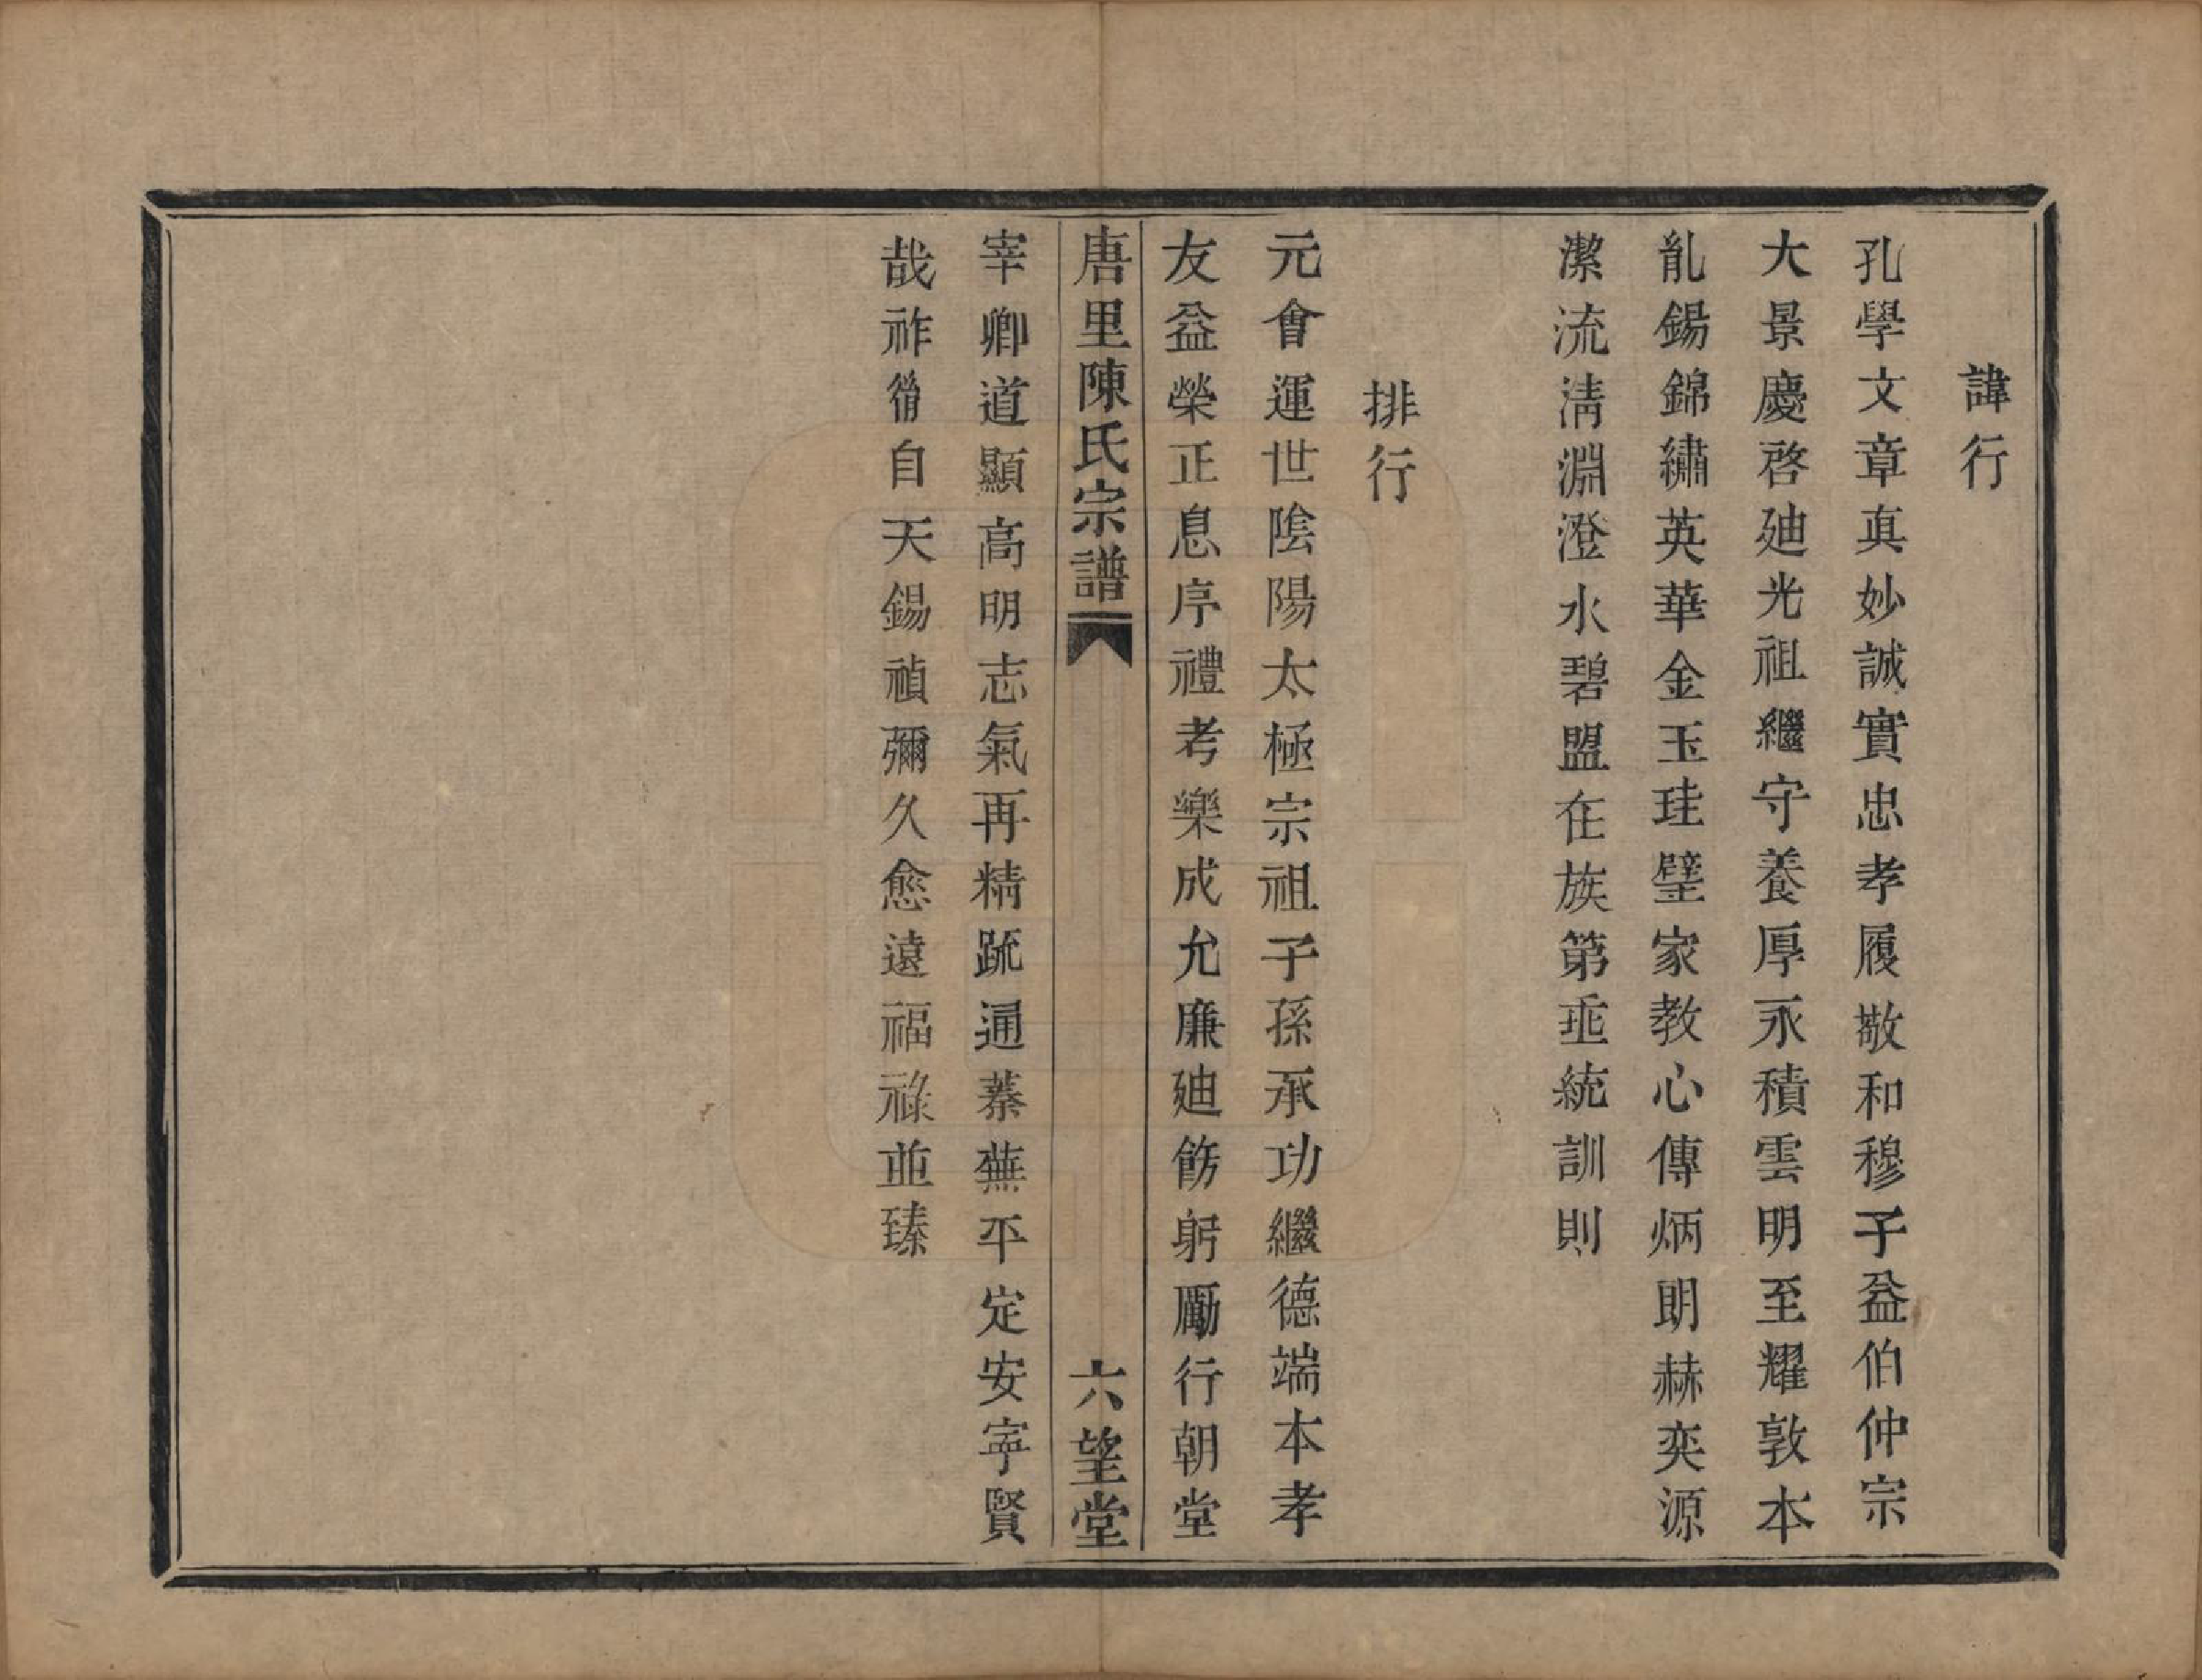 諱行
孔學文章真妙誠實忠孝履敬和穆子益伯仲宗
大景慶啓廸光祖繼守養厚永積雲明至耀敦本
胤錫錦繡英華金玉珪璧家教心傳炳朗赫奕源
潔流淸淵澄水碧盟在族第垂統訓則
排行
元會運世陰陽太極宗祖子孫承功繼德端本孝
友益榮正息序禮考樂成允廉廸飭躬勵行朝堂
唐里陳氏宗譜
六望堂
宰卿道顯高明志氣再精䟽通蓁蕪平定安寧賢
哉祚胤自天錫禎彌久愈遠福祿並臻